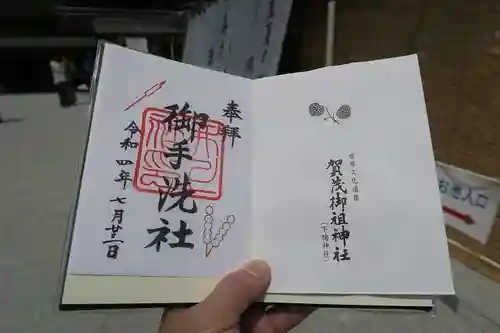 奉拝
御手洗社
令和四年七月廿二日
世界文化遺産
賀茂御祖神社
(下鴨神社)
お池入口